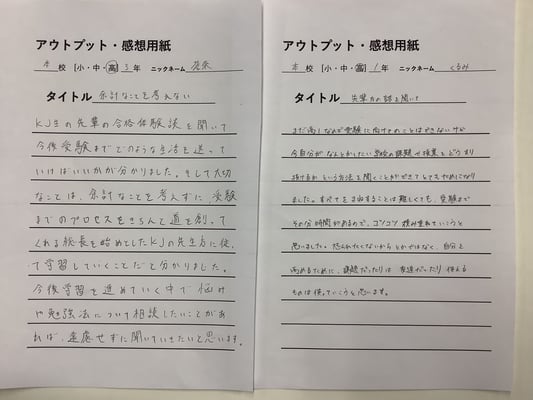 アウトプット・感想用紙
本 校 [小・中・高] 3 年 ニックネーム
タイトル 余計なことを考えない
KJ生の先輩の合格体験談を聞いて
今後受験までどのような生活を送って
いけばいいかが分かりました。そして大切
なことは、余計なことを考えずに、受験
までのプロセスをきちんと道を創って
くれる校長を始めとしたKJの先生方に従っ
て学習していくことだと分かりました。
今後学習を進めていく中で悩み
や勉強法について相談したいことがあ
れば、遠慮せずに聞いていきたいと思います。
アウトプット・感想用紙
本 校 [小・中・高] 1 年 ニックネーム くるみ
タイトル 先輩方の話を聞いて
まだ高1なんで受験に向けてのことはできないけど
今自分がなんとかしたい学校の課題や授業をどうまず
抜けるか という方法を聞くことができてとてもためになり
ました。すべてをまねすることは難しくても、受験まで
その分時間があるので、コツコツ積み重ねていこうと
思いました。怒られたくないからとかではなく、自分を
高めるために、課題だったりは 友達だったり 使える
ものは使っていこうと思います。